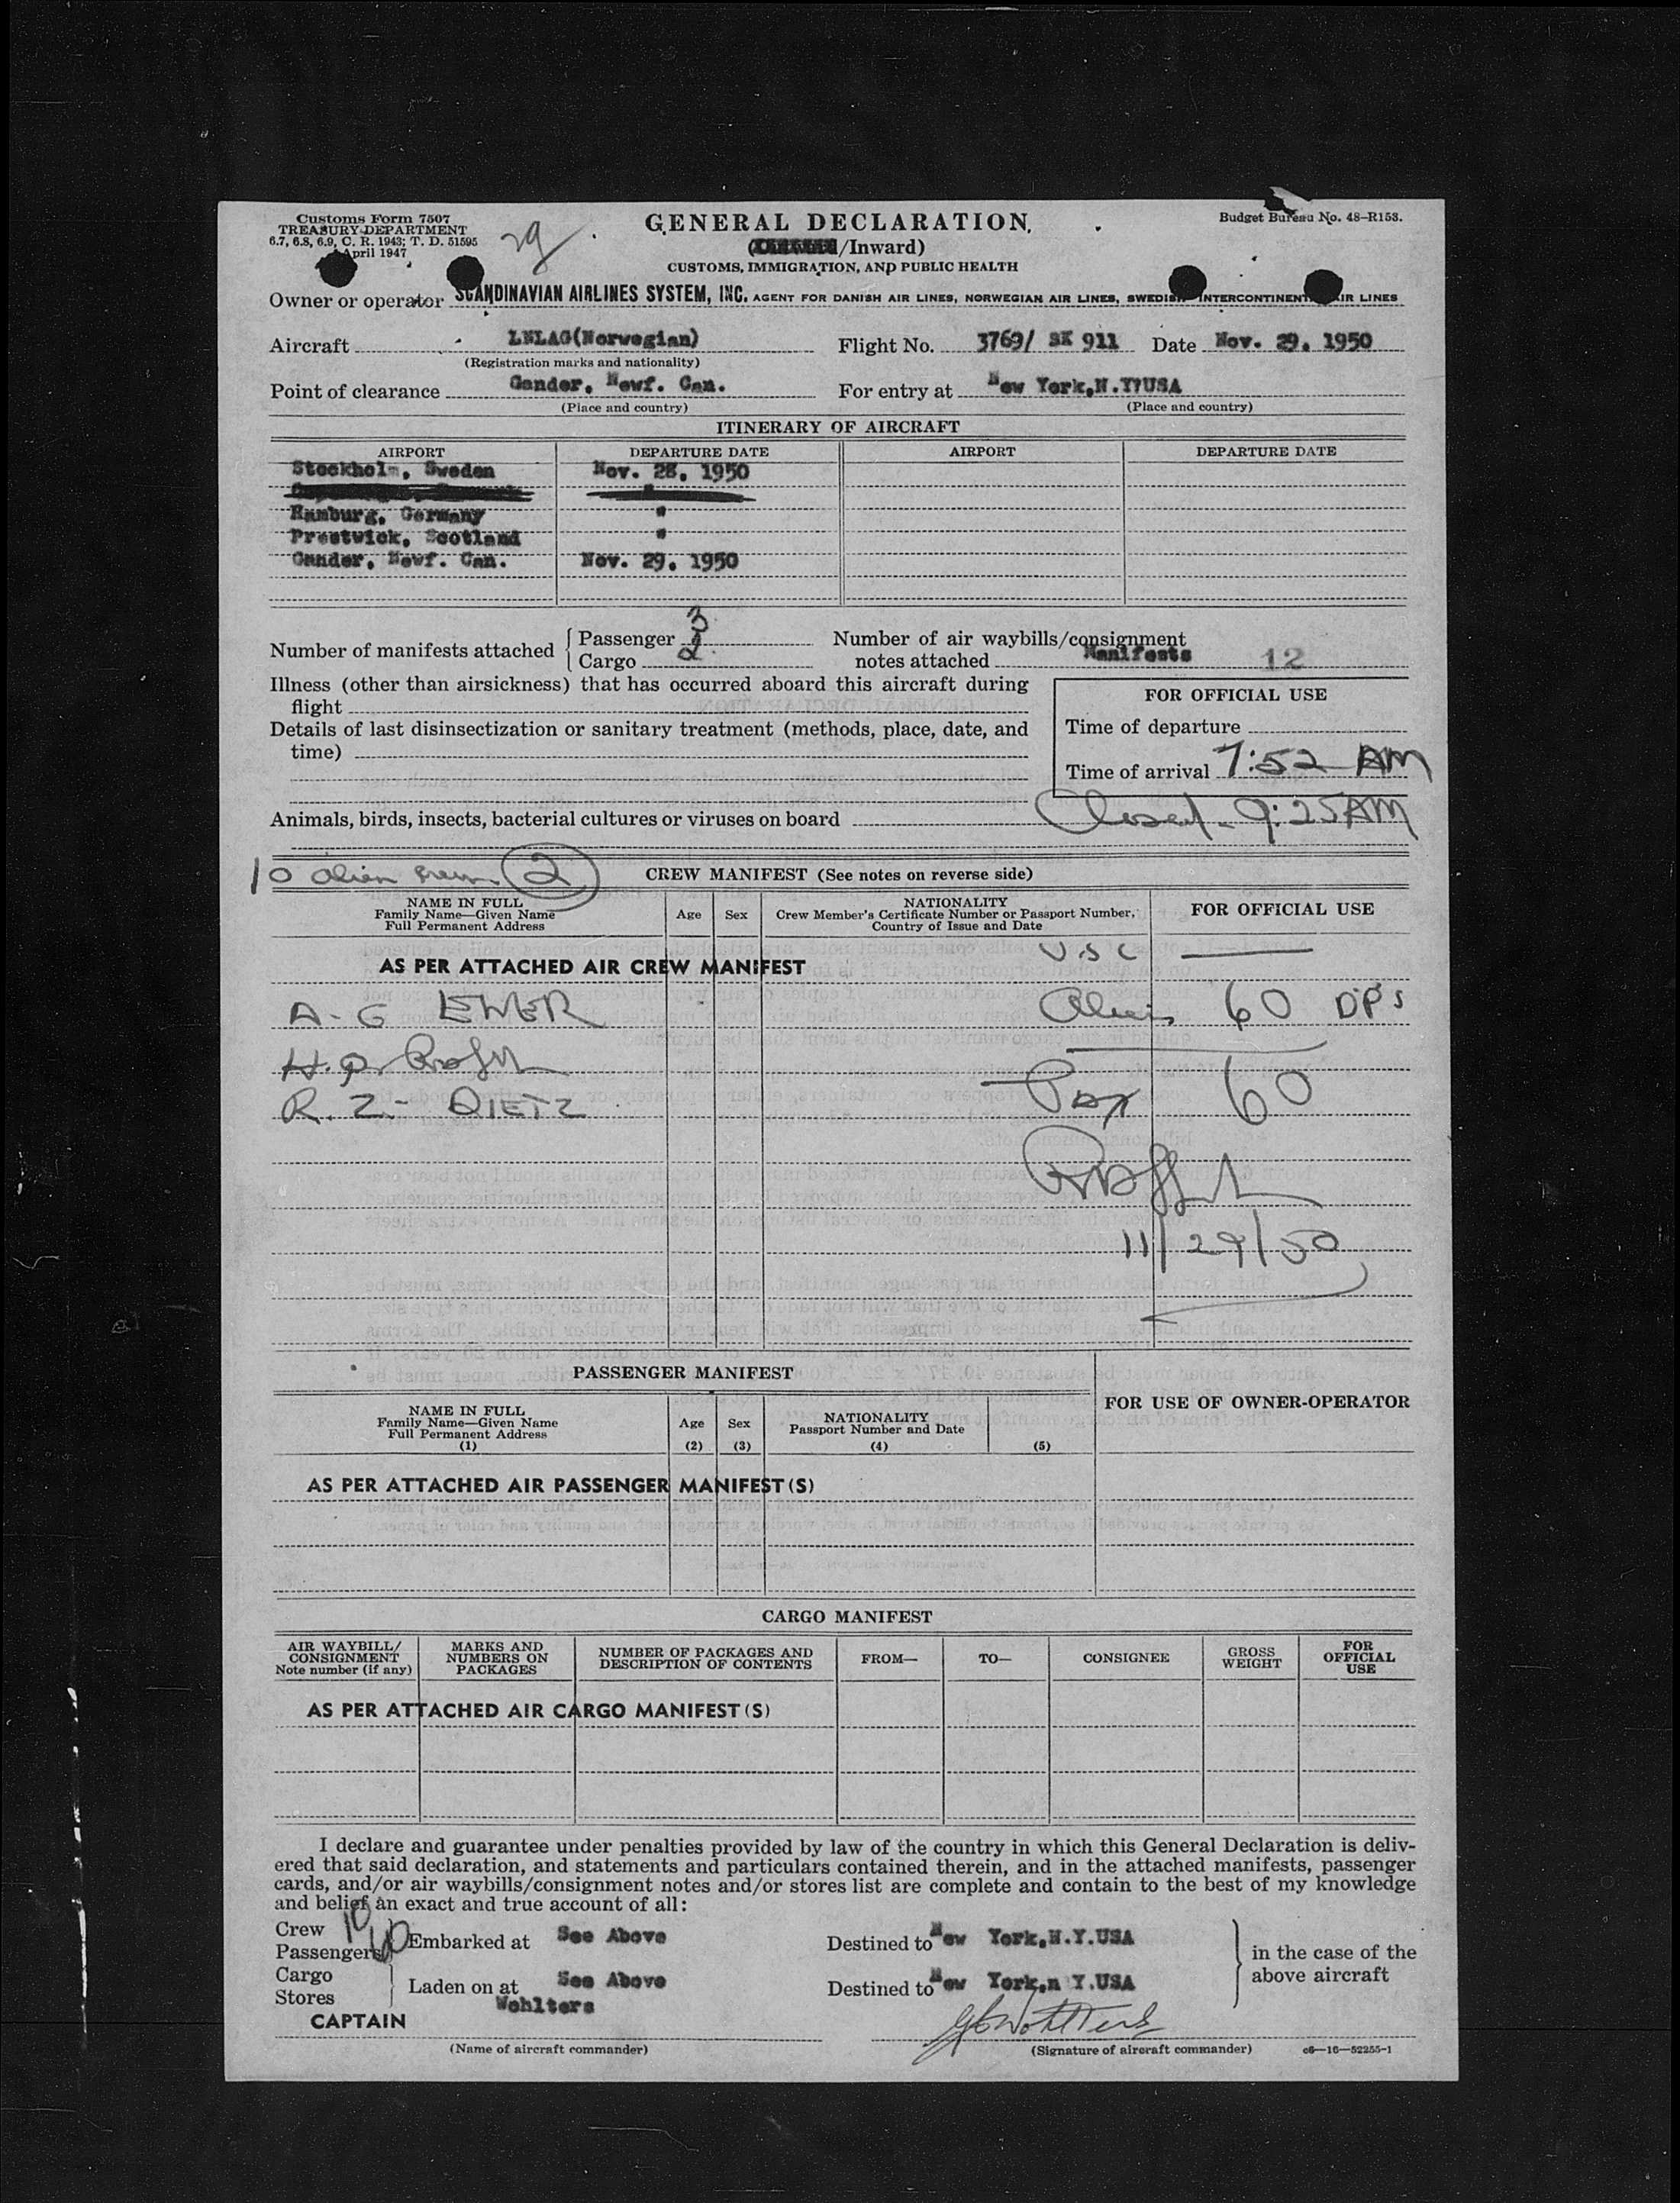 Customs Form 7507
TREASURY DEPARTMENT
6.7, 6.8, 6.9, C. R. 1943; T. D. 51595
April 1947
29
GENERAL DECLARATION
(/Inward)
CUSTOMS, IMMIGRATION, AND PUBLIC HEALTH
Budget Bureau No. 48–R153.
Owner or operator SCANDINAVIAN AIRLINES SYSTEM, INC. AGENT FOR DANISH AIR LINES, NORWEGIAN AIR LINES, SWEDISH INTERCONTINENTAL AIR LINES
Aircraft LNLAG(Norwegian) Flight No. 3769/ SK 911 Date Nov. 29, 1950
(Registration marks and nationality)
Point of clearance Gander, Newf. Can. For entry at New York,N.Y?USA
(Place and country) (Place and country)
ITINERARY OF AIRCRAFT
AIRPORT DEPARTURE DATE AIRPORT DEPARTURE DATE
Stockholm, Sweden Nov. 28, 1950
Hamburg, Germany "
Prestwick, Scotland "
Gander, Newf. Can. Nov. 29, 1950
Number of manifests attached { Passenger 3
Cargo 2
Number of air waybills/consignment
notes attached Manifests 12
Illness (other than airsickness) that has occurred aboard this aircraft during
flight
Details of last disinsectization or sanitary treatment (methods, place, date, and
time)
FOR OFFICIAL USE
Time of departure
Time of arrival 7:52 AM
Closed - 9:25 AM
Animals, birds, insects, bacterial cultures or viruses on board
10 alien crew 2
CREW MANIFEST (See notes on reverse side)
NAME IN FULL
Family Name—Given Name
Full Permanent Address
Age Sex
NATIONALITY
Crew Member's Certificate Number or Passport Number,
Country of Issue and Date
FOR OFFICIAL USE
U.S.C. —
AS PER ATTACHED AIR CREW MANIFEST
A. G EWER Aliens 60 DP's
H.P.
R. Z. DIETZ Pax 60
11/29/50
PASSENGER MANIFEST
FOR USE OF OWNER-OPERATOR
NAME IN FULL
Family Name—Given Name
Full Permanent Address
(1)
Age
(2)
Sex
(3)
NATIONALITY
Passport Number and Date
(4)
(5)
AS PER ATTACHED AIR PASSENGER MANIFEST(S)
CARGO MANIFEST
AIR WAYBILL/
CONSIGNMENT
Note number (if any)
MARKS AND
NUMBERS ON
PACKAGES
NUMBER OF PACKAGES AND
DESCRIPTION OF CONTENTS
FROM—
TO—
CONSIGNEE
GROSS
WEIGHT
FOR
OFFICIAL
USE
AS PER ATTACHED AIR CARGO MANIFEST(S)
I declare and guarantee under penalties provided by law of the country in which this General Declaration is deliv-
ered that said declaration, and statements and particulars contained therein, and in the attached manifests, passenger
cards, and/or air waybills/consignment notes and/or stores list are complete and contain to the best of my knowledge
and belief an exact and true account of all:
Crew 10
Passengers 60
Embarked at See Above Destined to New York,N.Y.USA
in the case of the
above aircraft
Cargo
Stores
Laden on at See Above Destined to New York,n Y.USA
CAPTAIN Wohlters
(Name of aircraft commander) (Signature of aircraft commander) c6—16—52255-1